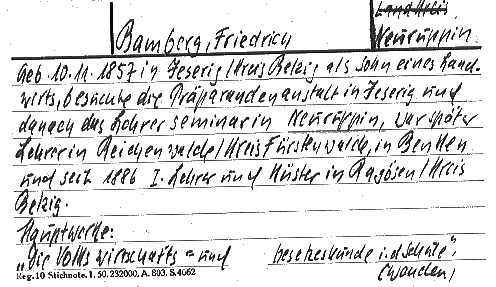 Landkreis
Bamberg, Friedrich Neuruppin
Geb. 10.11.1857 in Jeserig/Kreis Belzig als Sohn eines Land-
wirts, besuchte die Präparandenanstalt in Jeserig und
danach das Lehrerseminar in Neuruppin, war später
Lehrer in Reichenwalde/Kreis Fürstenwalde, in Beutten
und seit 1886 I. Lehrer und Küster in Ragösen/Kreis
Belzig.
Hauptwerke:
"Die Volkswirtschafts- und Gesetzeskunde i. d. Schule",
Reg. 10 Stichnote. I. 50. 232000. A. 803. S. 4662